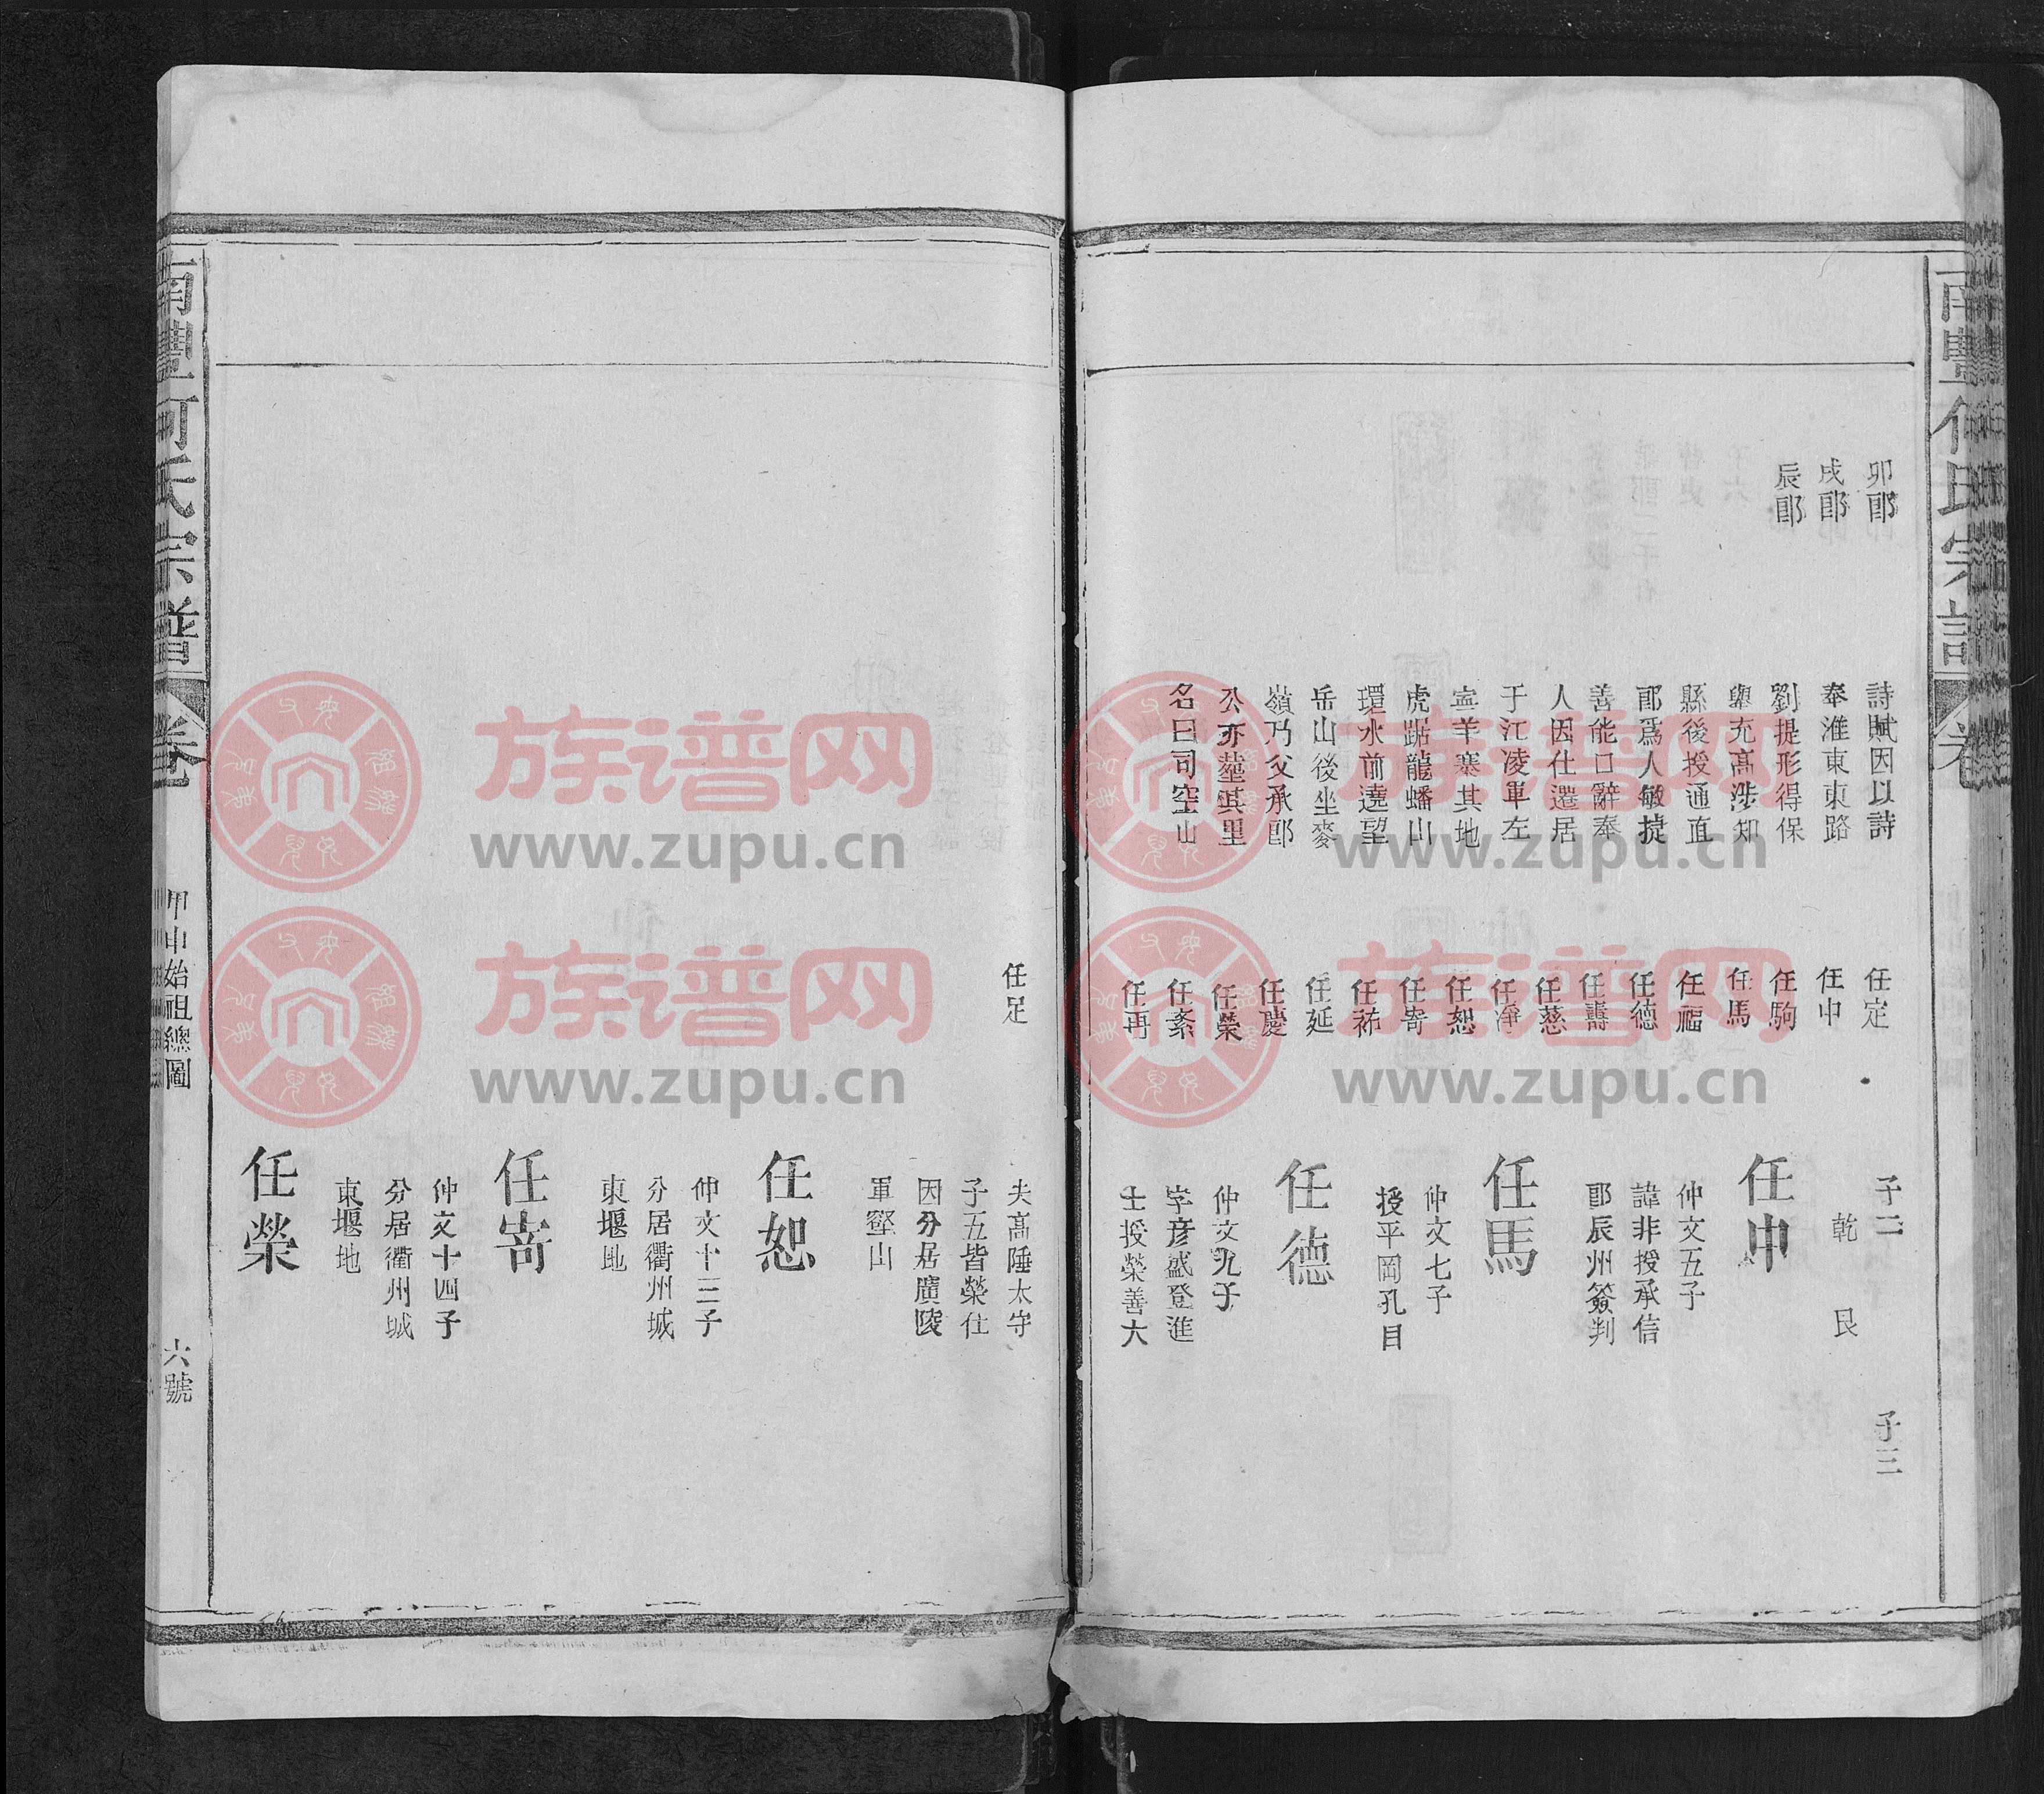 南豐何氏宗譜
卷
卯郎
戌郎
辰郎
詩賦因以詩
奉淮東東路
劉提形得保
舉充高涉知
縣後授通直
郎爲人敏㨗
善能口辭奉
人因仕遷居
于江凌軍左
寍羊寨其地
虎踞龍蟠山
環水前遶望
岳山後坐麥
嶺乃父承郎
公亦塟其里
名曰司空山
任定
任申
任駒
任馬
任福
任德
任壽
任慈
任淨
任恕
任寄
任祐
任延
任慶
任榮
任紊
任再
子二
乾
艮
子三
任申
仲文五子
諱非授承信
郎辰州簽判
任馬
仲文七子
授平岡孔目
任德
仲文九子
字彥盛登進
士授榮善大
任足
夫高陲太守
子五皆榮仕
因分居廣陵
軍壑山
任恕
仲文十三子
分居衢州城
東堰地
任寄
仲文十四子
分居衢州城
東堰地
任榮
南豐何氏宗譜
卷
甲申始祖總圖
六號
族谱网
www.zupu.cn
族谱网
www.zupu.cn
族谱网
www.zupu.cn
族谱网
www.zupu.cn